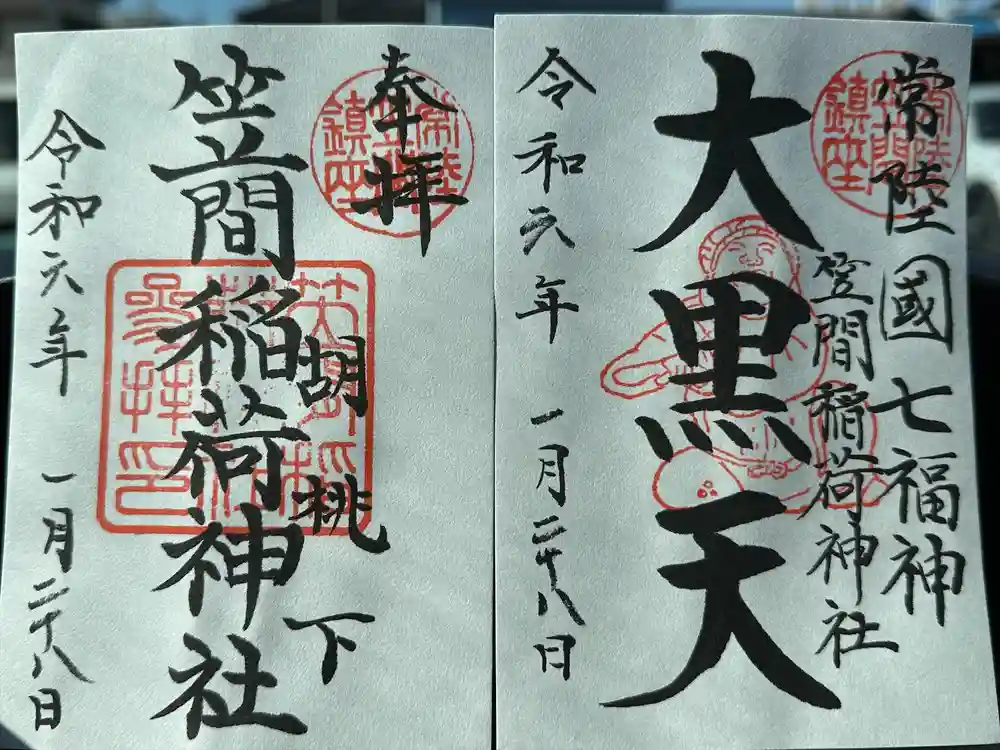 常陸國七福神
笠間稲荷神社
常陸
笠間
鎮座
大黒天
令和六年 一月二十八日
奉拝
常陸
笠間
鎮座
胡桃下
笠間稲荷神社
参拝印
令和六年 一月二十八日